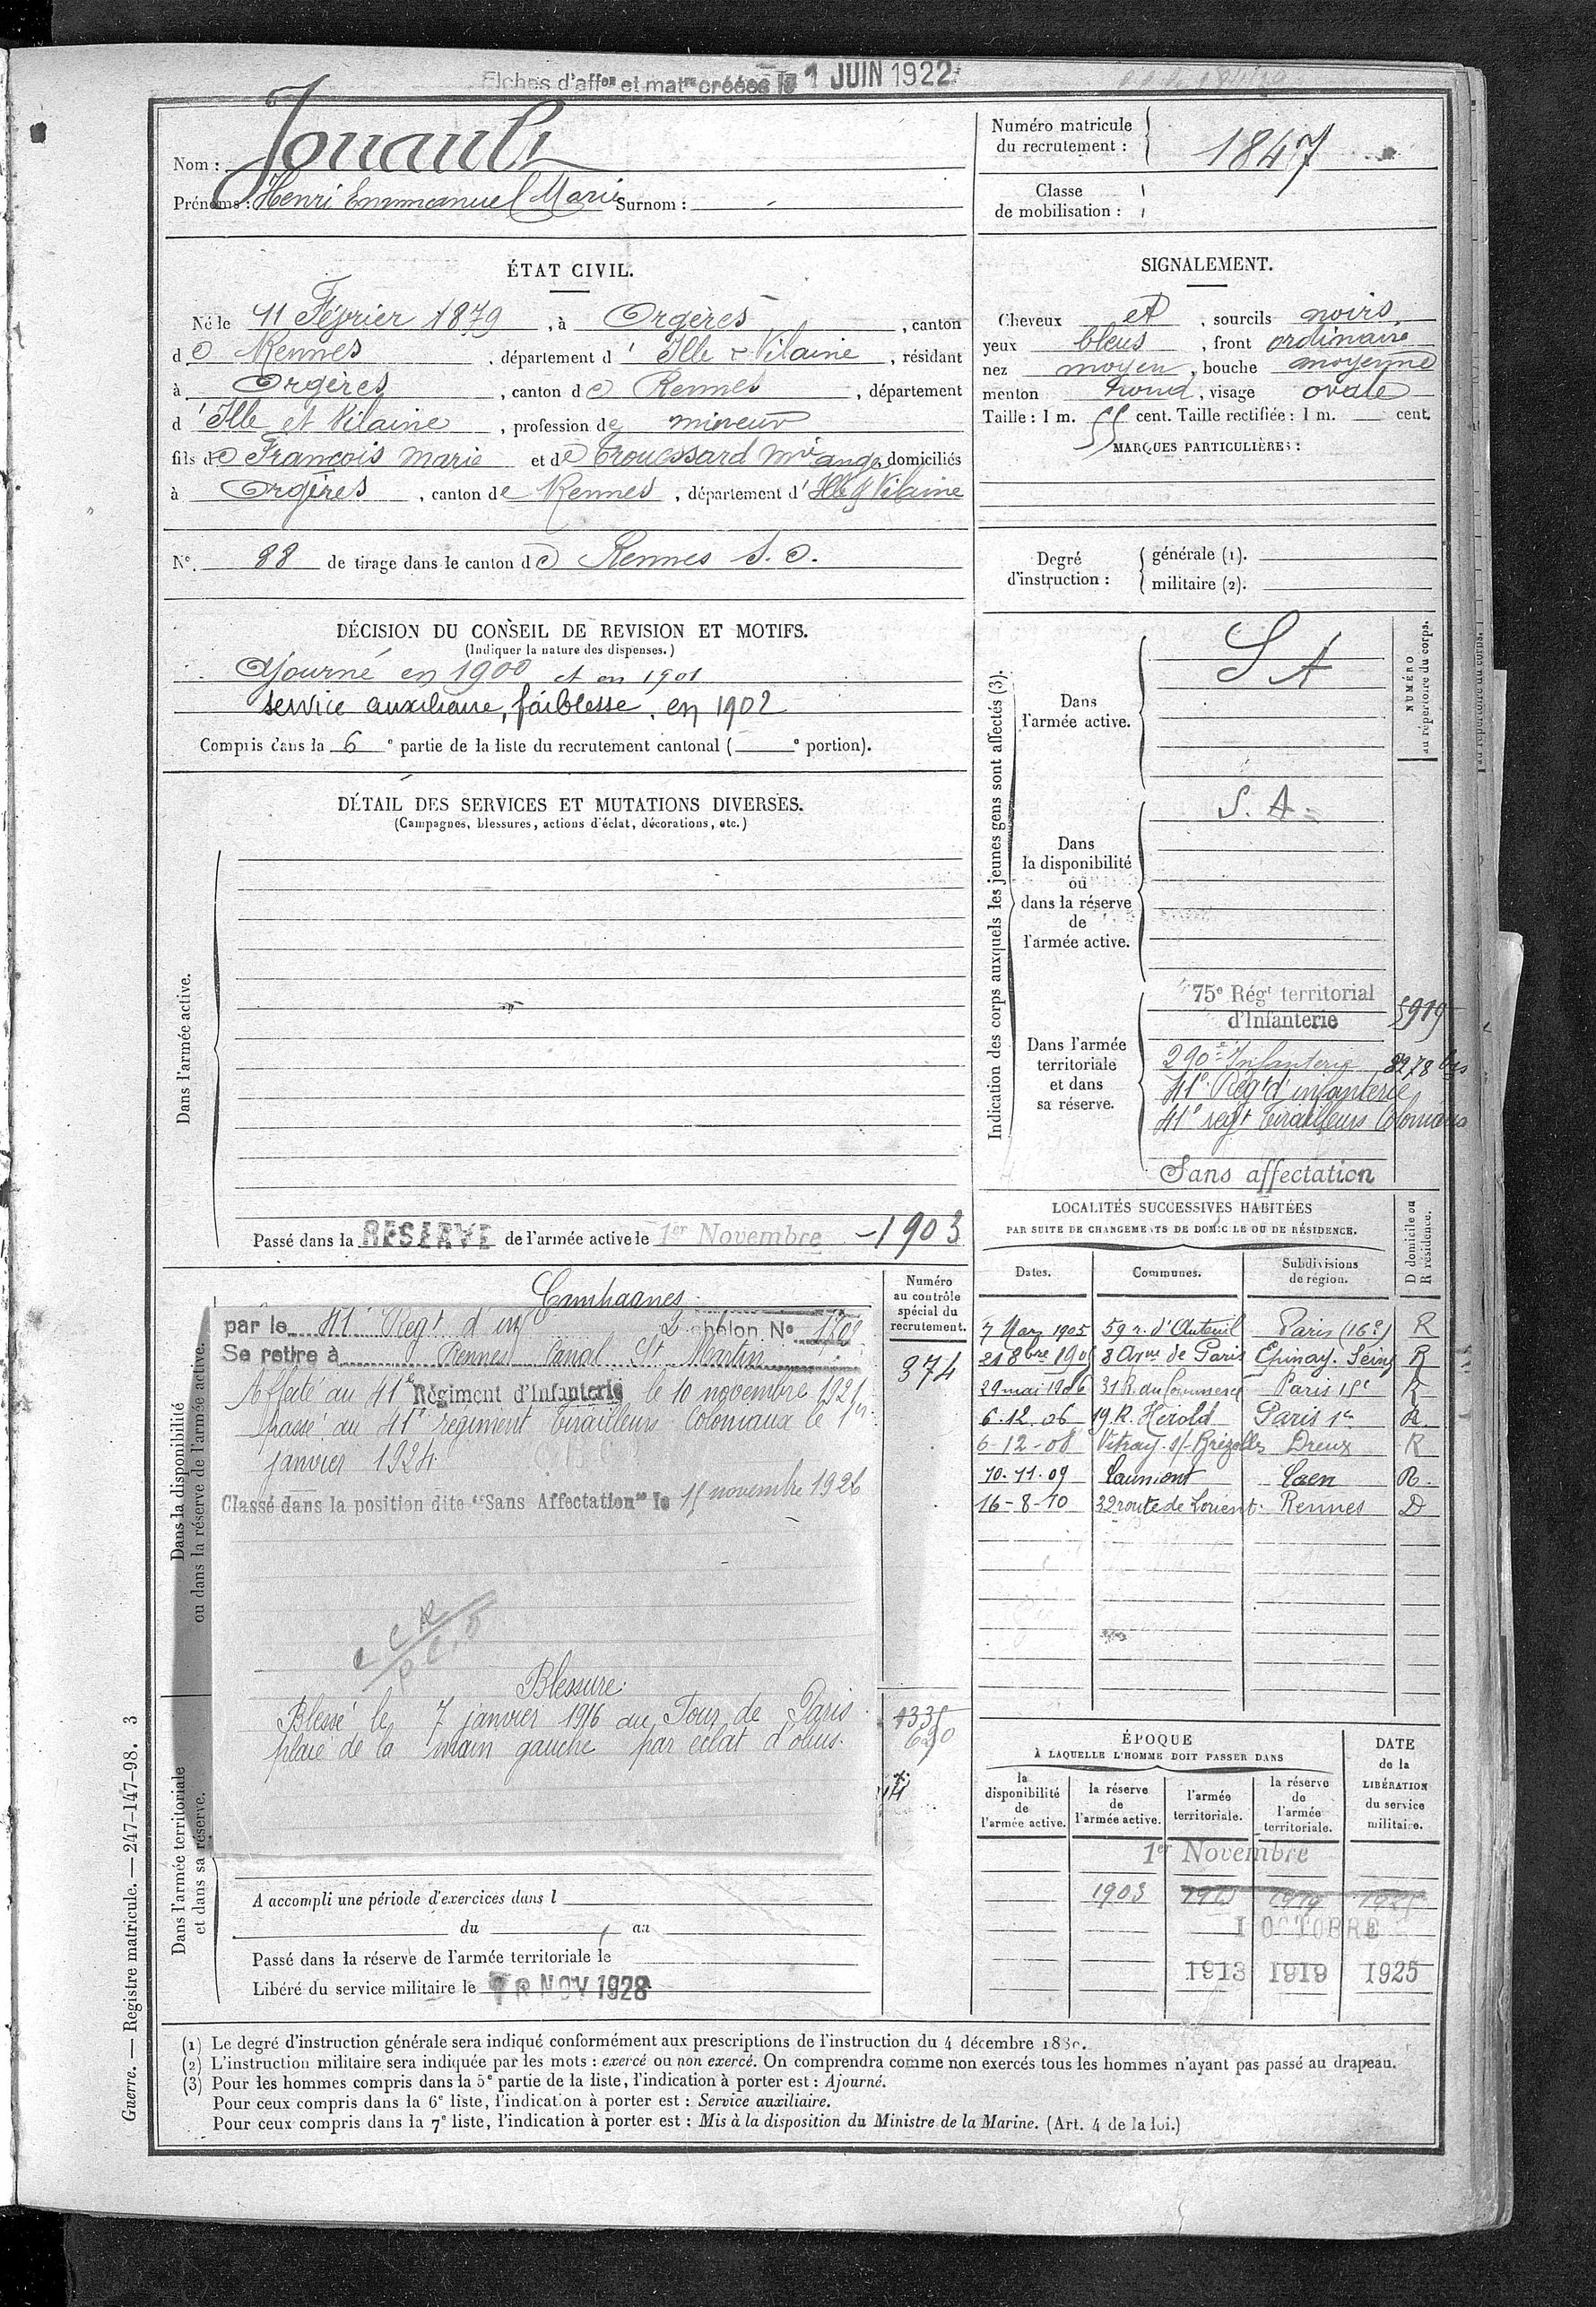 Fiches d'affon et matre créées le 1 JUIN 1922
Nom : Jouault
Prénoms : Henri Emmanuel Marie Surnom : -
Numéro matricule du recrutement : 1847
Classe de mobilisation :
ÉTAT CIVIL.
Né le 11 Février 1879, à Orgères, canton
de Rennes, département d' Ille & Vilaine, résidant
à Orgères, canton de Rennes, département
d'Ille et Vilaine, profession de mineur
fils de François Marie et de Trouessard Mie ange domiciliés
à Orgères, canton de Rennes, département d'Ille & Vilaine
SIGNALEMENT.
Cheveux et, sourcils noirs
yeux bleus, front ordinaire
nez moyen, bouche moyenne
menton rond, visage ovale
Taille : 1 m. 55 cent. Taille rectifiée : 1 m. cent.
MARQUES PARTICULIÈRES :
N° 88 de tirage dans le canton de Rennes S. O.
Degré d'instruction :
générale (1).
militaire (2).
DÉCISION DU CONSEIL DE REVISION ET MOTIFS.
(Indiquer la nature des dispenses.)
Ajourné en 1900 et en 1901
service auxiliaire, faiblesse, en 1902
Compris dans la 6e partie de la liste du recrutement cantonal ( e portion).
DÉTAIL DES SERVICES ET MUTATIONS DIVERSES.
(Campagnes, blessures, actions d'éclat, décorations, etc.)
Dans l'armée active.
Passé dans la RESERVE de l'armée active le 1er Novembre 1903
Indication des corps auxquels les jeunes gens sont affectés (3).
NUMÉRO au répertoire du corps.
Dans l'armée active.
S A
Dans la disponibilité ou dans la réserve de l'armée active.
S. A.
Dans l'armée territoriale et dans sa réserve.
75e Régt territorial d'Infanterie 5919
290e Infanterie 8278 bis
41e Régt d'infanterie
41e regt Tirailleurs Coloniaux
Sans affectation
Campagnes
Numéro au contrôle spécial du recrutement.
374
Dans la disponibilité ou dans la réserve de l'armée active.
par le 41e Régt d'inf échelon N° 1202
Se retire à Rennes Canal St Martin
Affecté au 41e Régiment d'Infanterie le 10 novembre 1921
passé au 41e régiment Tirailleurs Coloniaux le 1er
janvier 1924.
Classé dans la position dite "Sans Affectation" le 15 novembre 1926
Blessure.
Blessé le 7 janvier 1916 au Four de Paris
plaie de la main gauche par éclat d'obus.
Dans l'armée territoriale et dans sa réserve.
A accompli une période d'exercices dans l
du au
Passé dans la réserve de l'armée territoriale le
Libéré du service militaire le NOV 1928
LOCALITÉS SUCCESSIVES HABITÉES
PAR SUITE DE CHANGEMENTS DE DOMICILE OU DE RÉSIDENCE.
Dates. Communes. Subdivisions de région. D domicile ou R résidence.
7 Mars 1905 59 r. d'Auteuil Paris (16e) R
21 8bre 1905 8 Avue de Paris Epinay. Seine R
29 mai 1906 31 R. du Commerce Paris 15e R
6.12.06 19 R. Hérold Paris 1er R
6-12-08 Vitray s/-Brézolles Dreux R
10.11.09 Caumont Caen R.
16-8-10 32 route de Lorient Rennes D
ÉPOQUE
À LAQUELLE L'HOMME DOIT PASSER DANS
DATE de la LIBÉRATION du service militaire.
la disponibilité de l'armée active.
la réserve de l'armée active.
l'armée territoriale.
la réserve de l'armée territoriale.
1er Novembre
1903
1 OCTOBRE
1913 1919 1925
(1) Le degré d'instruction générale sera indiqué conformément aux prescriptions de l'instruction du 4 décembre
(2) L'instruction militaire sera indiquée par les mots : exercé ou non exercé. On comprendra comme non exercés tous les hommes n'ayant pas passé au drapeau.
(3) Pour les hommes compris dans la 5e partie de la liste, l'indication à porter est : Ajourné.
Pour ceux compris dans la 6e liste, l'indication à porter est : Service auxiliaire.
Pour ceux compris dans la 7e liste, l'indication à porter est : Mis à la disposition du Ministre de la Marine. (Art. 4 de la loi.)
Guerre. — Registre matricule. — 247-147-98. 3